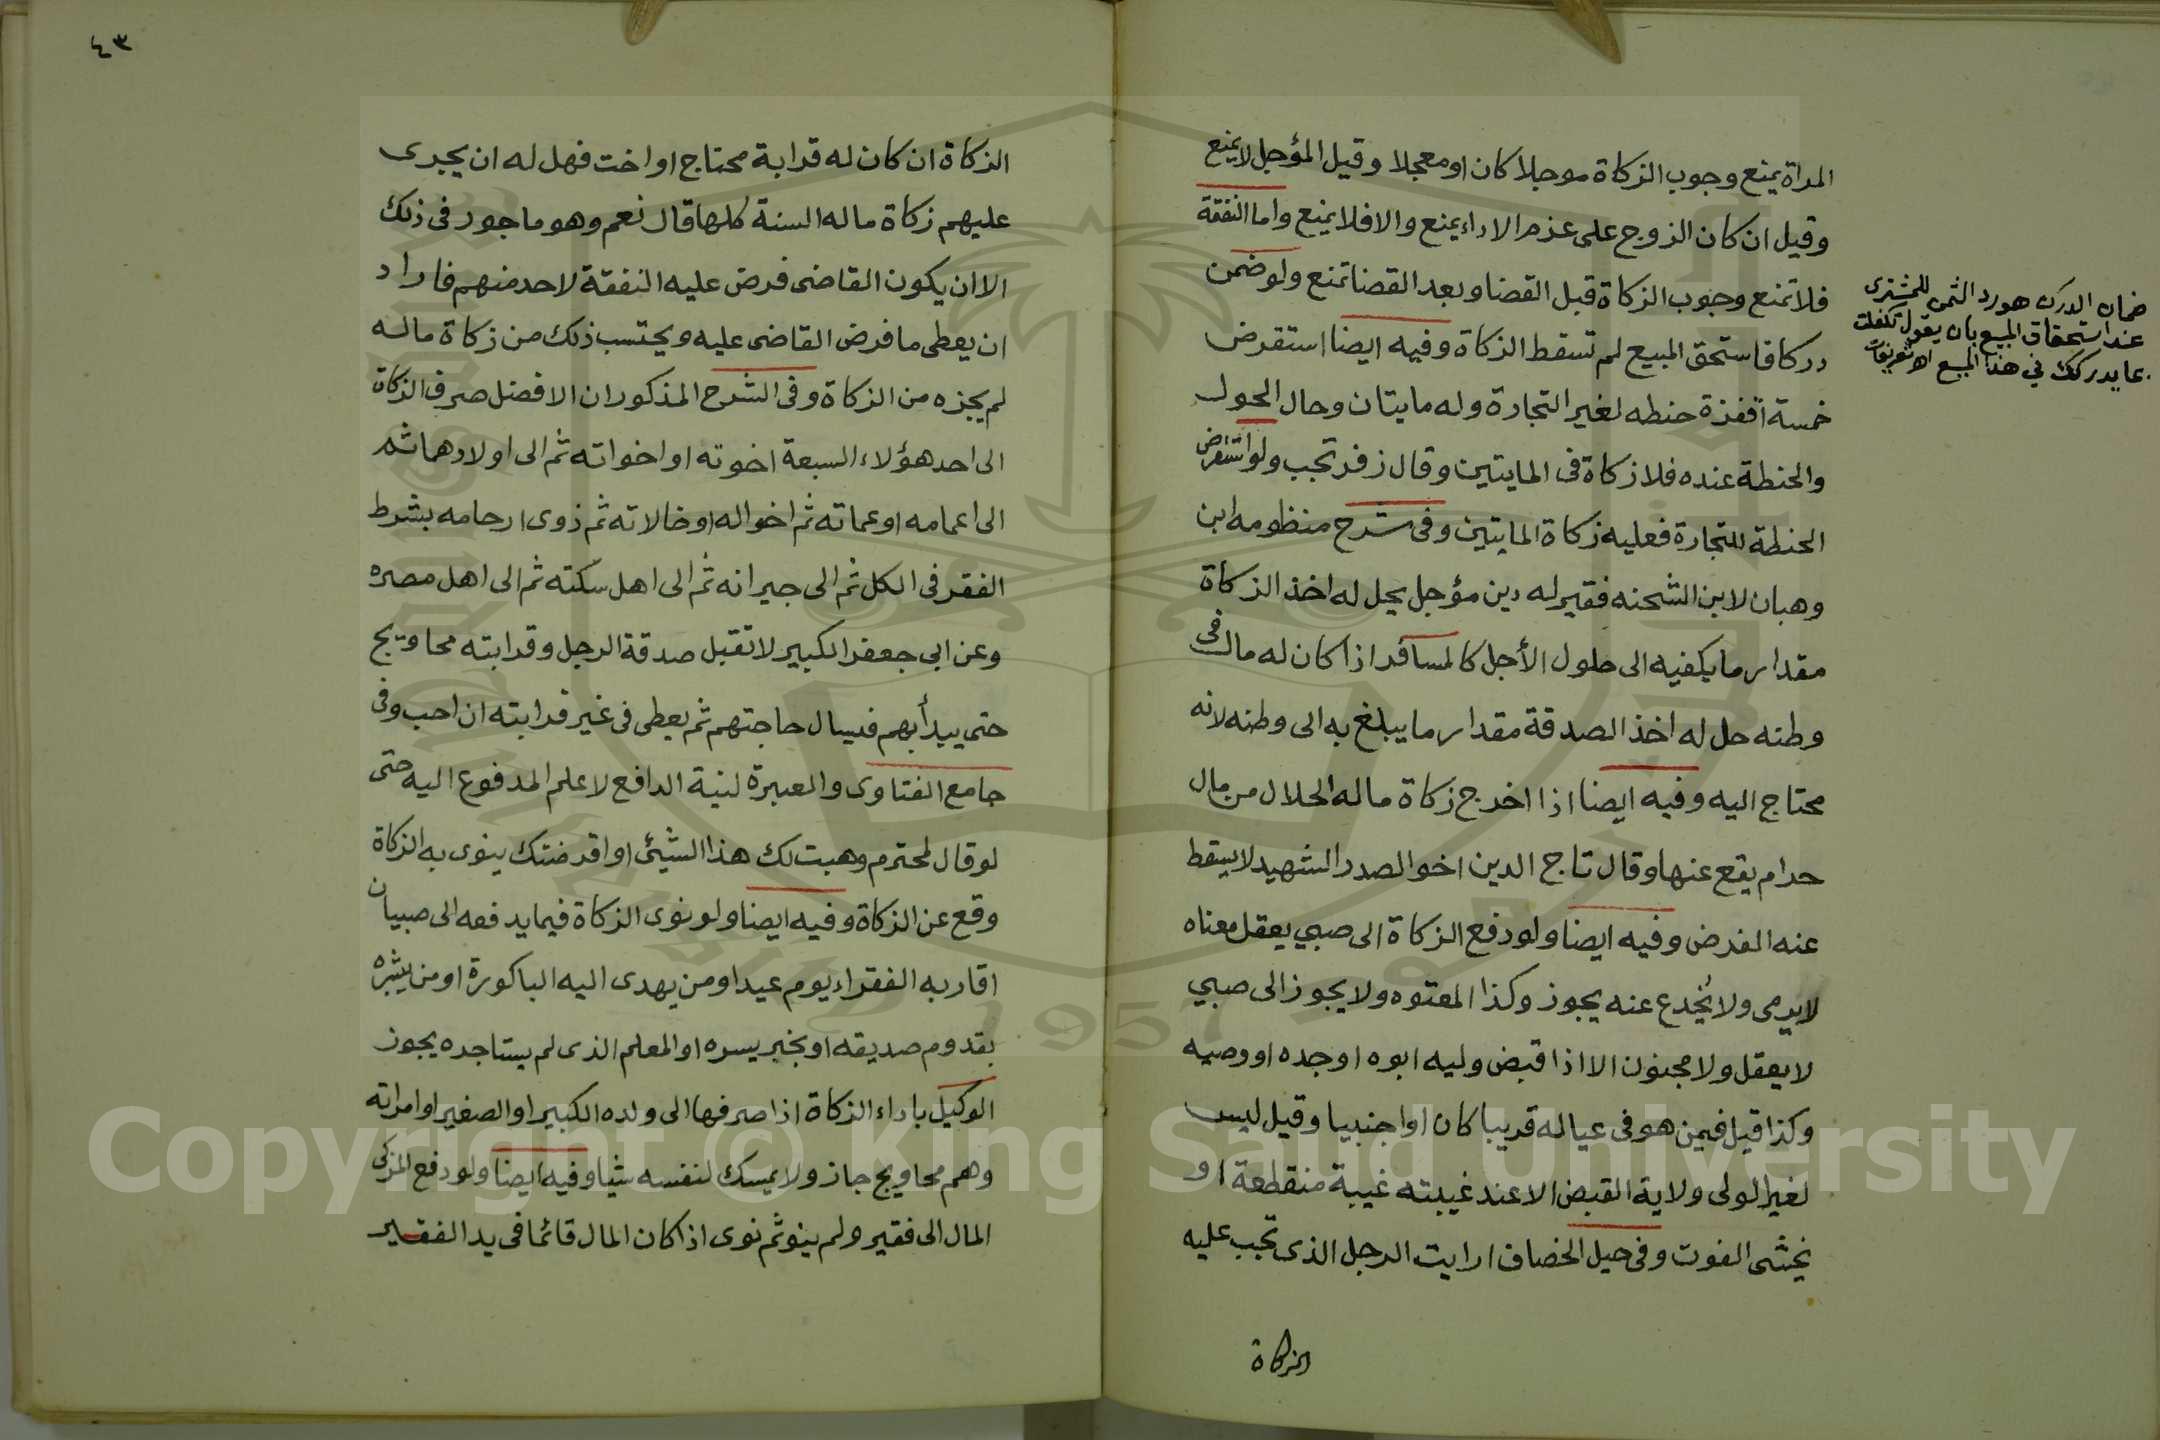 المراة يمنع وجوب الزكاة موجلا كان او معجلا وقيل المؤجل لا يمنع
وقيل ان كان الزوج على عزم الاداء يمنع والا فلا يمنع واما النفقة
فلا تمنع وجوب الزكاة قبل القضا وبعد القضا تمنع ولو ضمن
دركا فاستحق المبيع لم تسقط الزكاة وفيه ايضا استقرض
خمسة اقفزة حنطه لغير التجارة وله مايتان وحال الحول
والحنطة عنده فلا زكاة فى المايتين وقال زفر تجب ولو استقرض
الحنطة للتجارة فعليه زكاة المايتين وفى شرح منظومه ابن
وهبان لابن الشحنه فقير له دين مؤجل يحل له اخذ الزكاة
مقدار ما يكفيه الى حلول الأجل كالمسافر اذا كان له مال فى
وطنه حل له اخذ الصدقة مقدار ما يبلغ به الى وطنه لانه
محتاج اليه وفيه ايضا اذا اخرج زكاة ماله الحلال من مال
حرام يقع عنها وقال تاج الدين اخو الصدر الشهيد لا يسقط
عنه الفرض وفيه ايضا ولو دفع الزكاة الى صبي يعقل معناه
لا يرمى ولا يخدع عنه يجوز وكذا المعتوه ولا يجوز الى صبي
لا يعقل ولا مجنون الا اذا قبض وليه ابوه او جده او وصيه
وكذا قيل فيمن هو فى عياله قريبا كان او اجنبيا وقيل ليس
لغير الولى ولاية القبض الا عند غيبته غيبة منقطعة او
يخشى الفوت وفى حيل الخصاف ارايت الرجل الذى تجب عليه
الزكاة
ضمان الدرك هو رد الثمن للمشترى
عند استحقاق المبيع بان يقول تكفلت
بما يدركك في هذا المبيع اه تعريفات
٤٣
الزكاة ان كان له قرابة محتاج او اخت فهل له ان يجرى
عليهم زكاة ماله السنة كلها قال نعم وهو ماجور فى ذلك
الا ان يكون القاضى فرض عليه النفقة لاحد منهم فاراد
ان يعطى ما فرض القاضى عليه ويحتسب ذلك من زكاة ماله
لم يجزه من الزكاة وفى الشرح المذكور ان الافضل صرف الزكاة
الى احد هؤلاء السبعة اخوته او اخواته ثم الى اولادهما ثم
الى اعمامه او عماته ثم اخواله او خالاته ثم ذوى ارحامه بشرط
الفقر فى الكل ثم الى جيرانه ثم الى اهل سكته ثم الى اهل مصره
وعن ابى جعفر الكبير لا تقبل صدقة الرجل وقرابته محاويج
حتى يبدأ بهم فيسال حاجتهم ثم يعطى فى غير قرابته ان احب وفى
جامع الفتاوى والعبرة لنية الدافع لا علم المدفوع اليه حتى
لو قال لمحترم وهبت لك هذا الشيئ او اقرضتك ينوى به الزكاة
وقع عن الزكاة وفيه ايضا ولو نوى الزكاة فيما يدفعه الى صبيان
اقاربه الفقراء يوم عيد او من يهدى اليه الباكورة او من يبشره
بقدوم صديقه او بخبر يسره او المعلم الذى لم يستاجره يجوز
الوكيل باداء الزكاة اذا صرفها الى ولده الكبير او الصغير او امراته
وهم محاويج جاز ولا يمسك لنفسه شيا وفيه ايضا ولو دفع المزكى
المال الى فقير ولم ينو ثم نوى اذا كان المال قائما فى يد الفقير
Copyright © King Saud University
1957